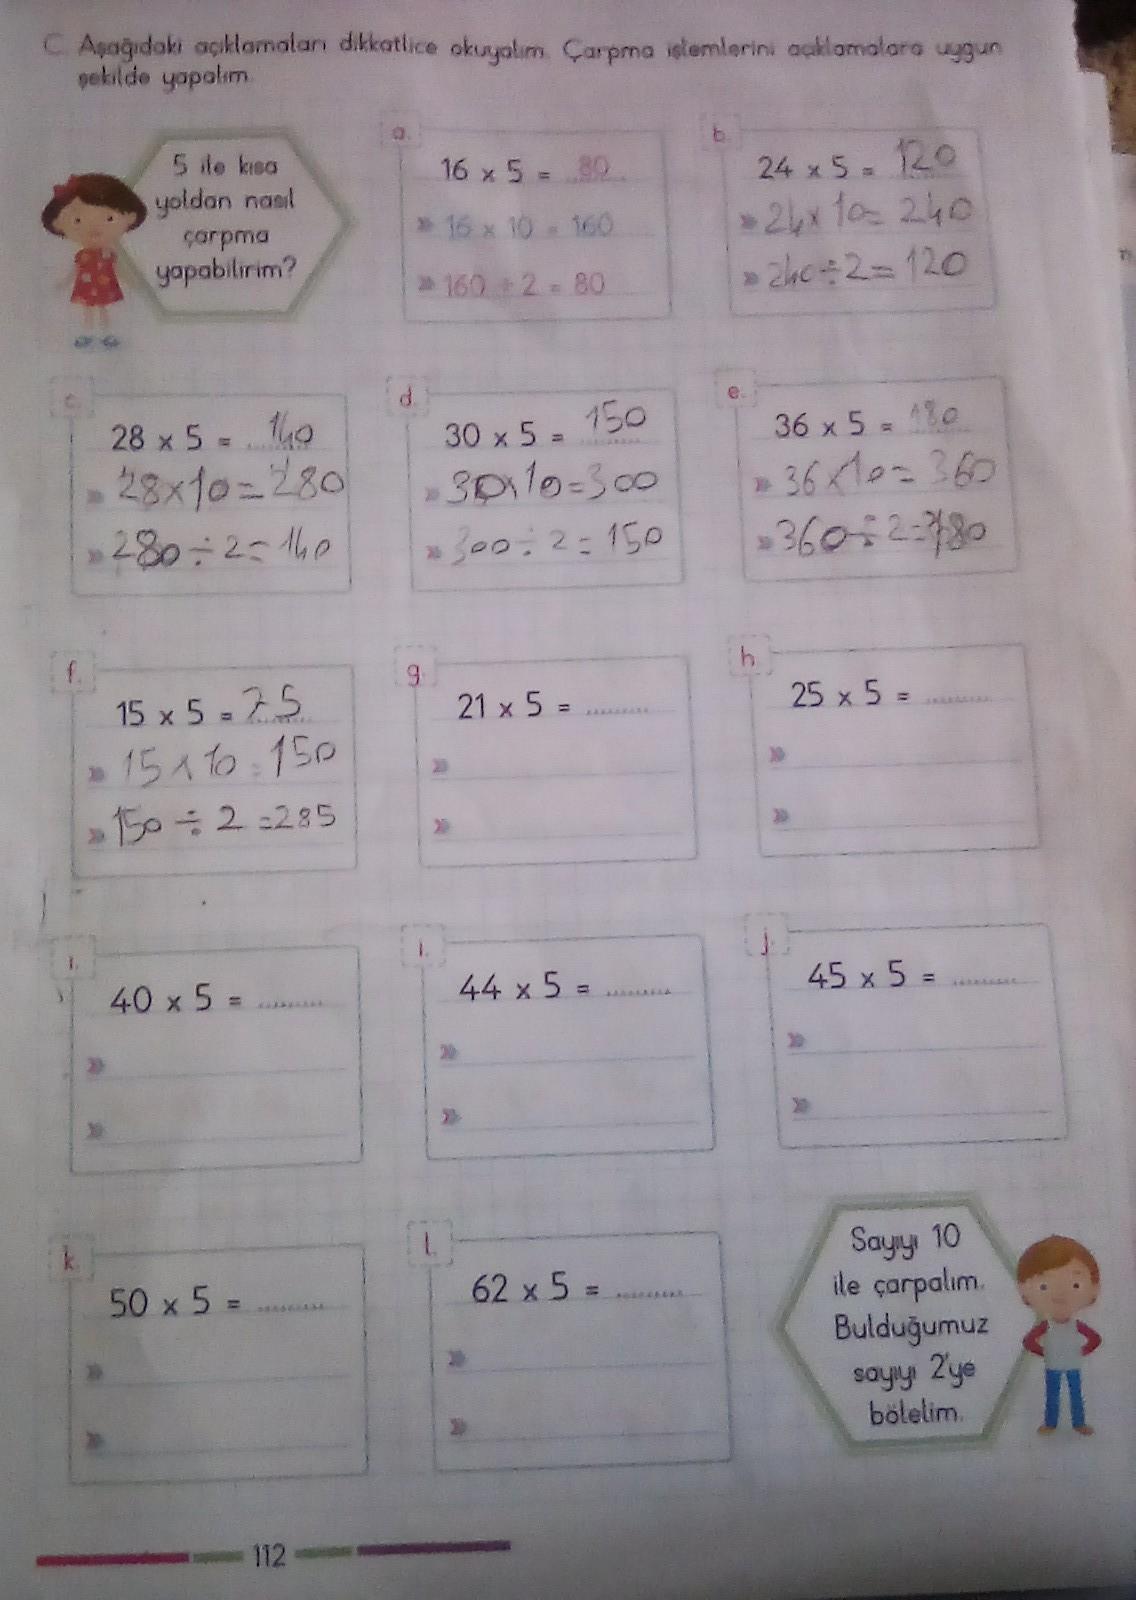 C. Aşağıdaki açıklamaları dikkatlice okuyalım. Çarpma işlemlerini açıklamalara uygun
şekilde yapalım.
5 ile kısa
yoldan nasıl
çarpma
yapabilirim?
a.
16 x 5 = 80
» 16 x 10 = 160
» 160 ÷ 2 = 80
b.
24 x 5 = 120
» 24x10= 240
» 240÷2= 120
c.
28 x 5 = 140
» 28x10=280
» 280÷2=140
d.
30 x 5 = 150
» 30x10=300
» 300÷2=150
e.
36 x 5 = 180
» 36x10=360
» 360÷2=180
f.
15 x 5 = 75
» 15x10=150
» 150÷2=285
g.
21 x 5 = .........
»
»
h.
25 x 5 = .........
»
»
ı.
40 x 5 = .........
»
»
i.
44 x 5 = .........
»
»
j.
45 x 5 = .........
»
»
k.
50 x 5 = .........
»
»
l.
62 x 5 = .........
»
»
Sayıyı 10
ile çarpalım.
Bulduğumuz
sayıyı 2'ye
bölelim.
112